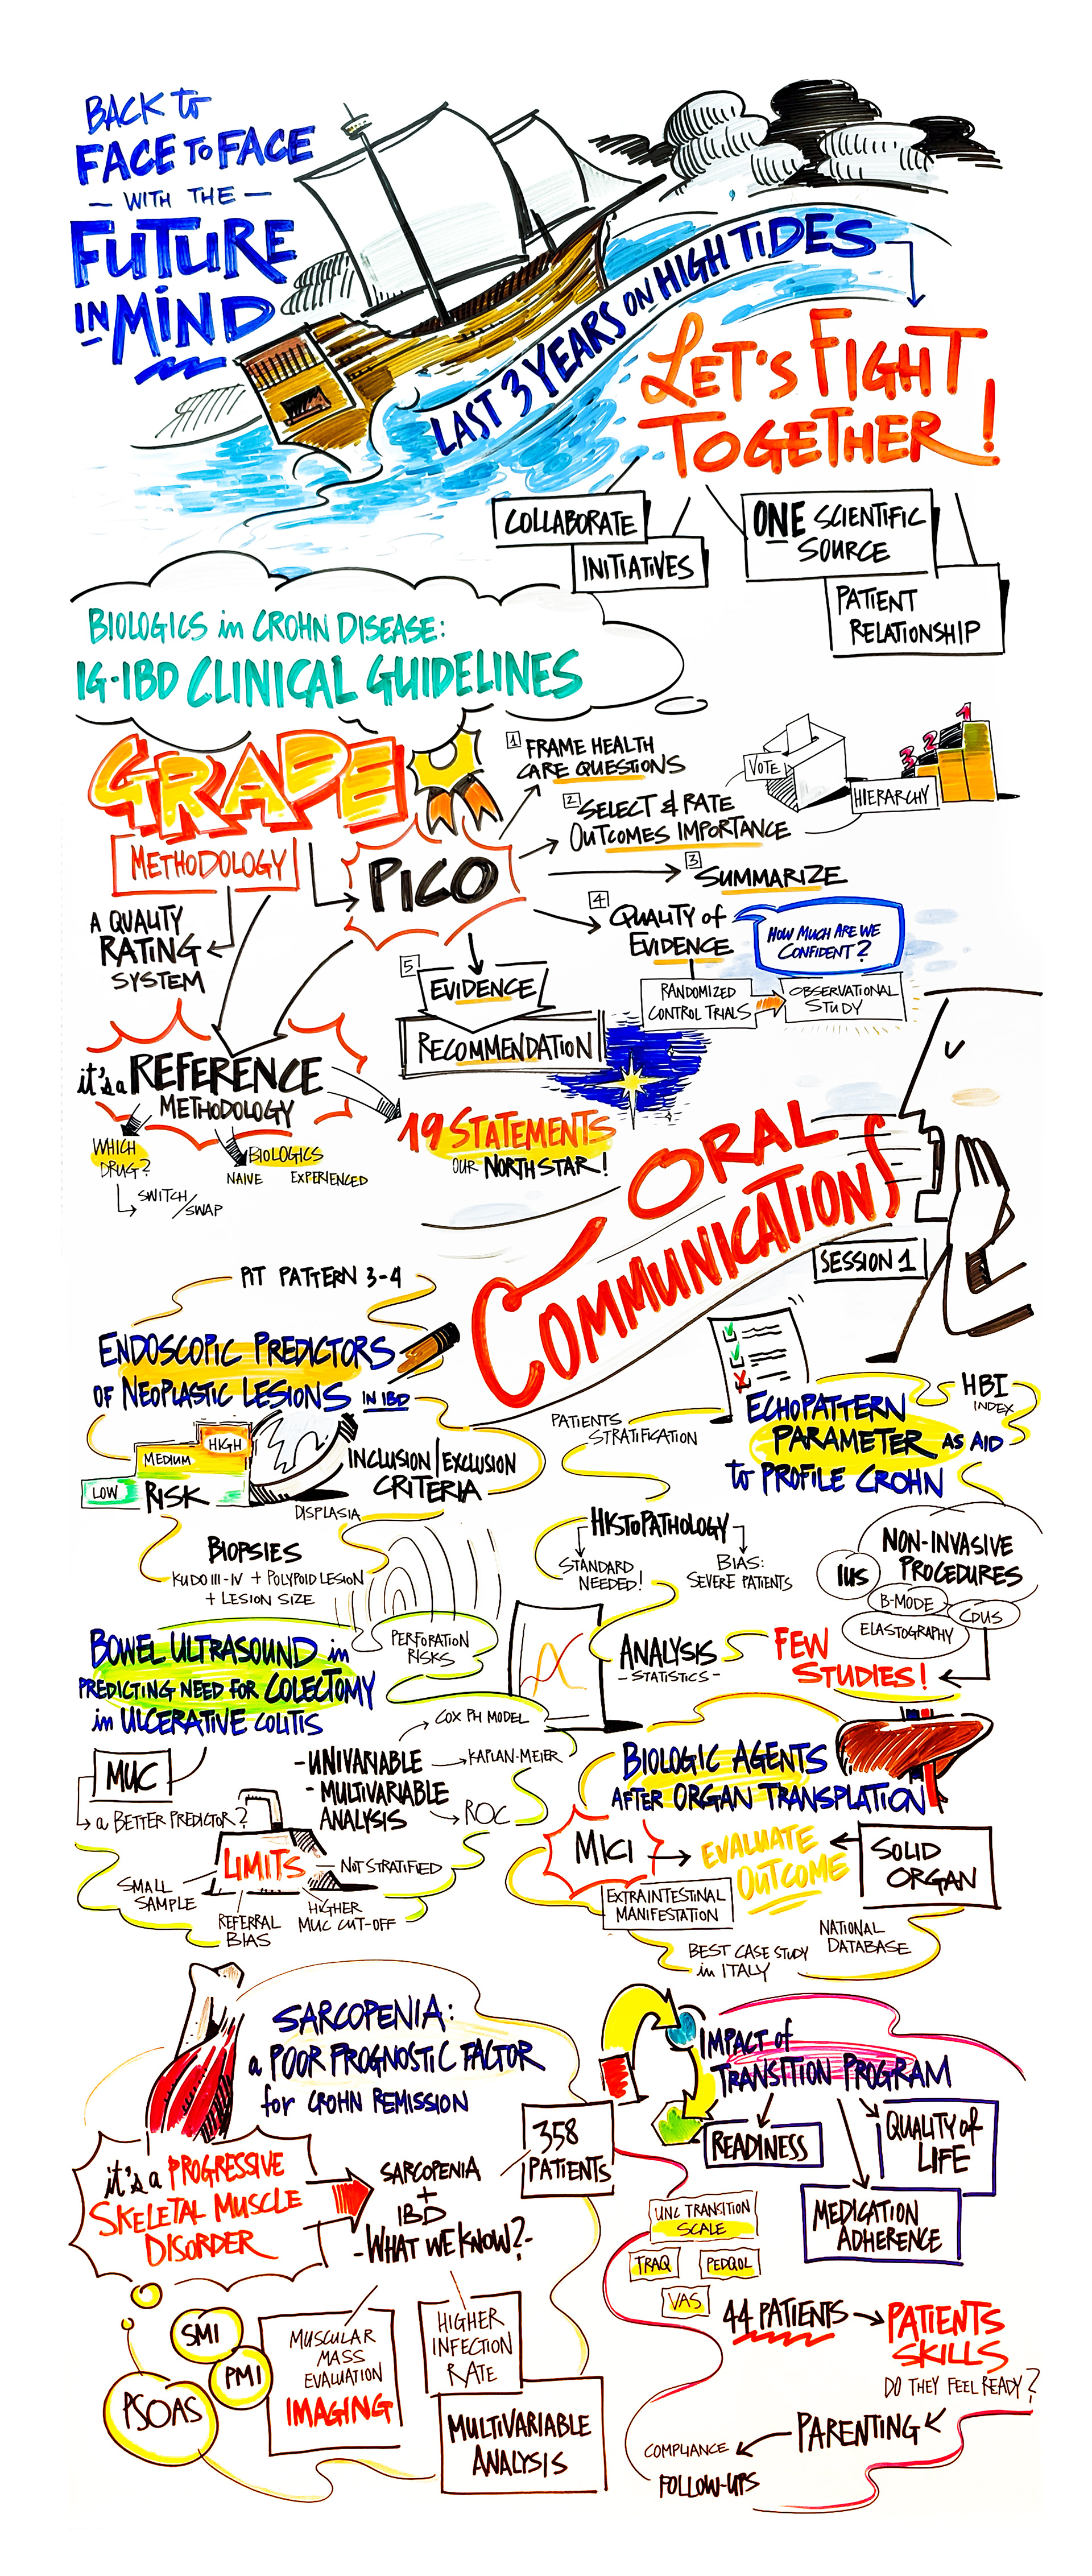 BACK to
FACE TO FACE
- WITH THE -
FUTURE
IN MIND
LAST 3 YEARS ON HIGH TIDES
LET'S FIGHT
TOGETHER!
COLLABORATE
INITIATIVES
ONE SCIENTIFIC
SOURCE
PATIENT
RELATIONSHIP
BIOLOGICS in CROHN DISEASE:
IG-IBD CLINICAL GUIDELINES
GRADE
METHODOLOGY
A QUALITY
RATING
SYSTEM
PICO
1 FRAME HEALTH
CARE QUESTIONS
2 SELECT & RATE
OUTCOMES IMPORTANCE
VOTE
HIERARCHY
1
2
3
3 SUMMARIZE
4 QUALITY of
EVIDENCE
HOW MUCH ARE WE
CONFIDENT?
RANDOMIZED
CONTROL TRIALS
OBSERVATIONAL
STUDY
5 EVIDENCE
RECOMMENDATION
it's a REFERENCE
METHODOLOGY
WHICH
DRUG?
SWITCH/
SWAP
BIOLOGICS
NAIVE EXPERIENCED
19 STATEMENTS
OUR NORTH STAR!
ORAL
COMMUNICATIONS
SESSION 1
PIT PATTERN 3-4
ENDOSCOPIC PREDICTORS
OF NEOPLASTIC LESIONS IN IBD
HIGH
MEDIUM
LOW
RISK
INCLUSION/EXCLUSION
CRITERIA
DISPLASIA
BIOPSIES
KUDO III-IV + POLYPOID LESION
+ LESION SIZE
ECHOPATTERN
PARAMETER AS AID
to PROFILE CROHN
HBI
INDEX
PATIENTS
STRATIFICATION
HISTOPATHOLOGY
STANDARD
NEEDED!
BIAS:
SEVERE PATIENTS
NON-INVASIVE
PROCEDURES
IUS
B-MODE
CDUS
ELASTOGRAPHY
ANALYSIS
- STATISTICS -
FEW
STUDIES!
BOWEL ULTRASOUND in
PREDICTING NEED FOR COLECTOMY
in ULCERATIVE COLITIS
PERFORATION
RISKS
MUC
a BETTER PREDICTOR?
- UNIVARIABLE
- MULTIVARIABLE
ANALYSIS
COX PH MODEL
KAPLAN-MEIER
ROC
LIMITS
SMALL
SAMPLE
REFERRAL
BIAS
HIGHER
MUC CUT-OFF
NOT STRATIFIED
BIOLOGIC AGENTS
AFTER ORGAN TRANSPLATION
MICI
EVALUATE
OUTCOME
SOLID
ORGAN
EXTRAINTESTINAL
MANIFESTATION
BEST CASE STUDY
in ITALY
NATIONAL
DATABASE
SARCOPENIA:
a POOR PROGNOSTIC FACTOR
for CROHN REMISSION
it's a PROGRESSIVE
SKELETAL MUSCLE
DISORDER
SARCOPENIA
+
IBD
- WHAT WE KNOW? -
358
PATIENTS
SMI
PMI
PSOAS
MUSCULAR
MASS
EVALUATION
IMAGING
HIGHER
INFECTION
RATE
MULTIVARIABLE
ANALYSIS
IMPACT of
TRANSITION PROGRAM
READINESS
QUALITY of
LIFE
MEDICATION
ADHERENCE
UNC TRANSITION
SCALE
TRAQ
PEDQOL
VAS
44 PATIENTS
PATIENTS
SKILLS
DO THEY FEEL READY?
PARENTING
COMPLIANCE
FOLLOW-UPS